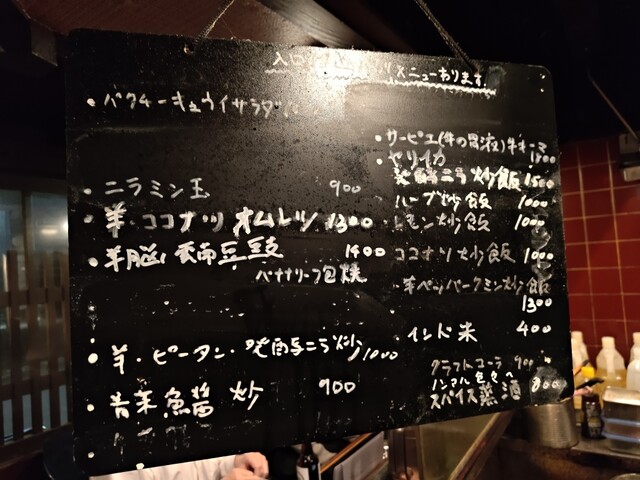 入口 メニューあります
・パクチーキュウイサラダ
・ニラミン玉 900
・羊・ココナツ オムレツ 1300
・羊脳 雲南豆豉 1400
バナナリーフ包焼
・羊・ピータン・発酵ニラ炒 1000
・青菜 魚醤 炒 900
・サーピエ(牛の胃液)牛
・ヤリイカ
発酵ニラ 炒飯 1500
・ハーブ炒飯 1000
・レモン炒飯 1000
ココナツ 炒飯 1000
・羊ペッパークミン炒飯
1300
・インド米 400
クラフトコーラ 900
スパイス薬酒 800